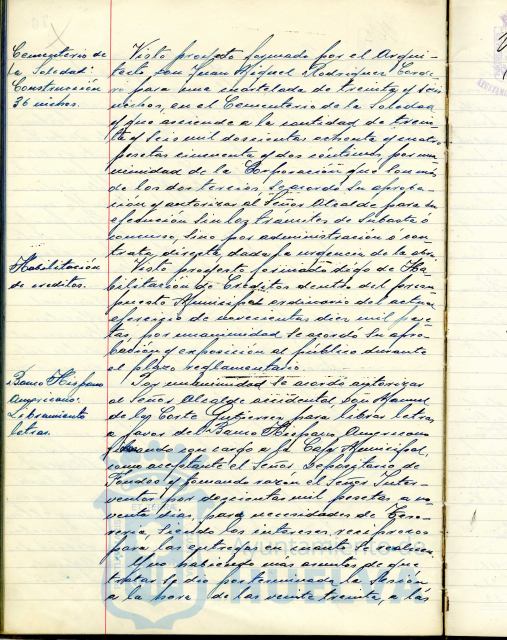 Cementerio de
la Soledad:
Construcción
36 nichos.
Visto proyecto formado por el Arqui-
tecto Don Juan Miguel Rodriguez Corde-
ro para una mantelada de treinta y seis
nichos, en el Cementerio de la Soledad
y que asciende a la cantidad de trein-
ta y seis mil doscientas ochenta y cuatro
pesetas cincuenta y dos céntimos, por una-
nimidad de la Corporación que son más
de los dos tercios, se acordó su aproba-
ción y autorizar al Señor Alcalde para su
ejecución sin los trámites de subasta ó
concurso, sino por administración ó con-
trata directa, dada la urgencia de la obra.
Habilitación
de creditos.
Visto proyecto formado digo de Ha-
bilitación de Creditos dentro del presu-
puesto Municipal ordinario del actual
ejercicio de novecientas diez mil pese-
tas, por unanimidad se acordó su apro-
bación y exposición al público durante
el plazo reglamentario.
Banco Hispano
Americano:
Libramiento
letras.
Por unanimidad se acordó autorizar
al Señor Alcalde accidental Don Manuel
de la Corte Gutiérrez para librar letras
a favor del Banco Hispano Americano
con cargo a la Caja Municipal,
como aceptante el Señor Depositario de
Fondos y tomando razón el Señor Inter-
ventor por doscientas mil pesetas a no-
venta dias, para necesidades de Teso-
rería, siendo los intereses reciprocos
para las entregas en cuanta se realicen.
Y no habiendo más asuntos de que
tratar se dio por terminada la Sesión
a la hora de las veinte treinta, a las
Ayuntamiento de
HUELVA